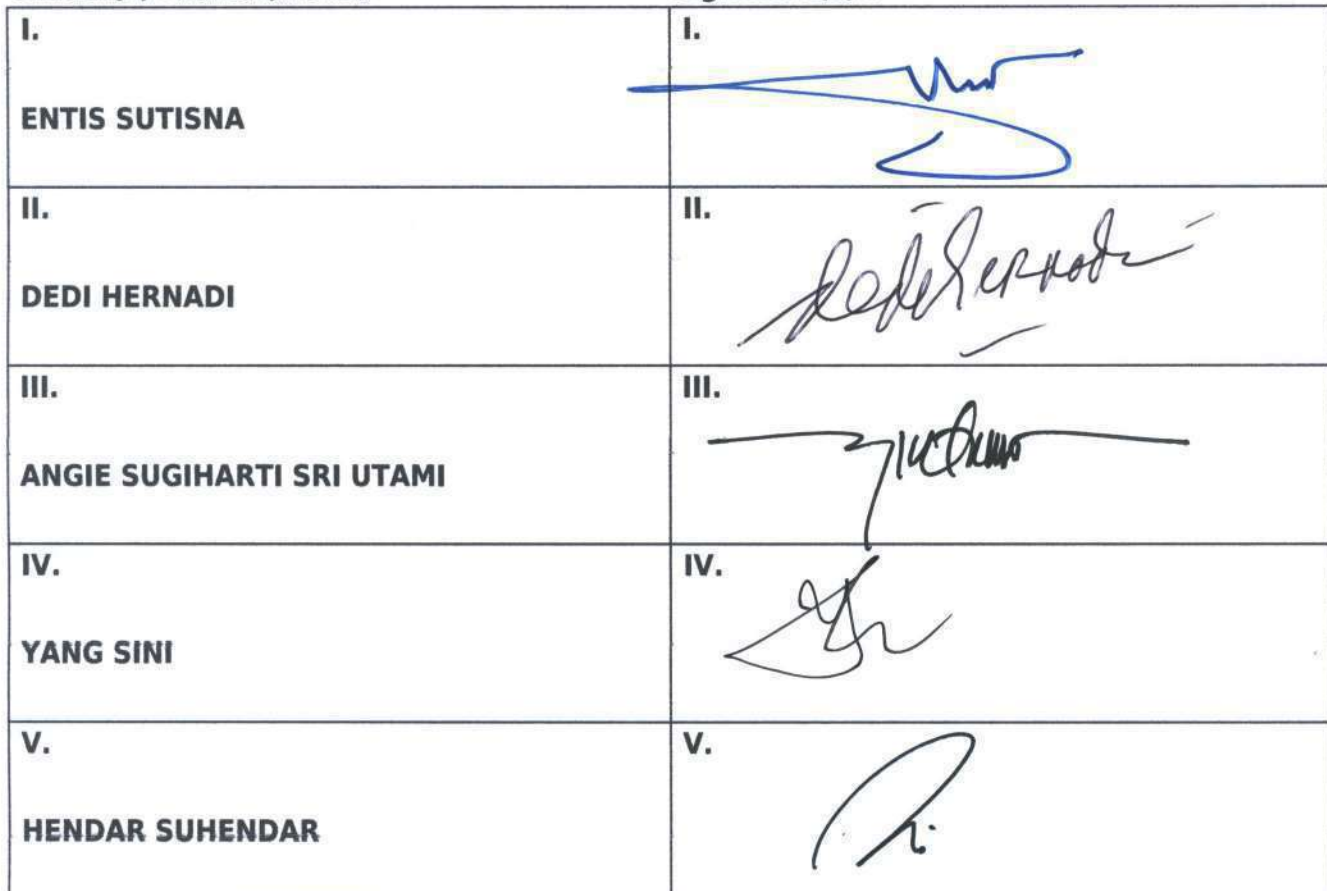 I.
I.
ENTIS SUTISNA
II.
II.
DEDI HERNADI
III.
III.
ANGIE SUGIHARTI SRI UTAMI
IV.
IV.
YANG SINI
V.
V.
HENDAR SUHENDAR